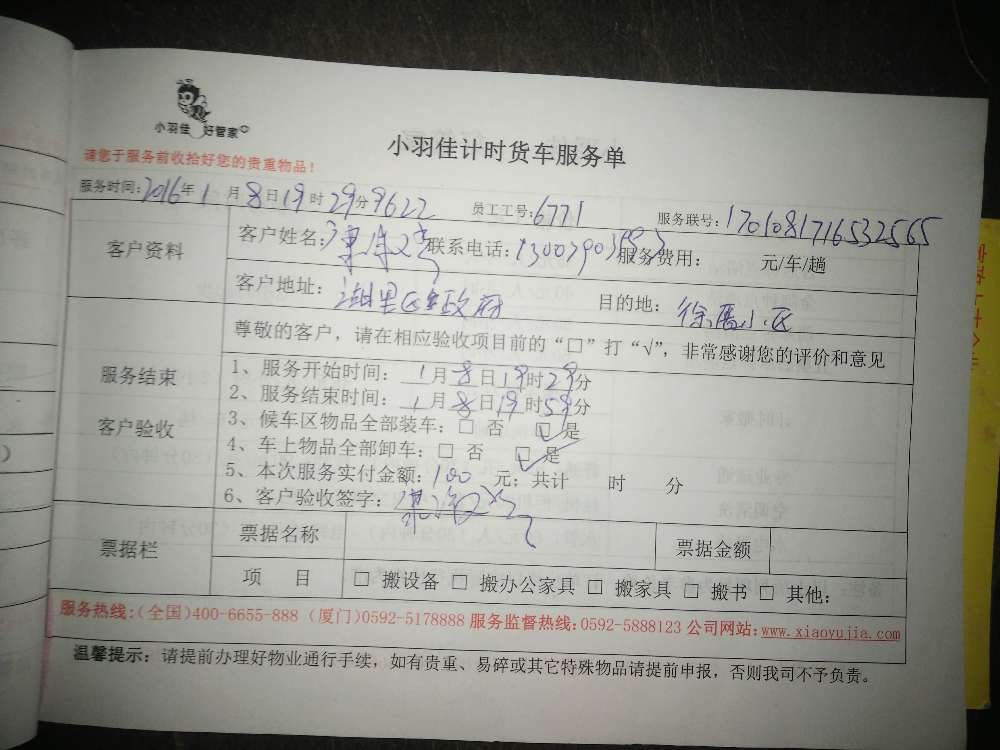 小羽佳 好管家
小羽佳计时货车服务单
请您于服务前收拾好您的贵重物品！
服务时间：2016年1月8日19时29分9622 员工工号：6771 服务联号：1701081716532565
客户资料
客户姓名： 联系电话： 服务费用： 元/车/趟
客户地址：湖里区政府 目的地：徐厝小区
尊敬的客户，请在相应验收项目前的“□”打“√”，非常感谢您的评价和意见
服务结束
客户验收
1、服务开始时间：1月8日19时29分
2、服务结束时间：1月8日19时59分
3、候车区物品全部装车：□ 否 □ 是
4、车上物品全部卸车：□ 否 □ 是
5、本次服务实付金额：100 元；共计 时 分
6、客户验收签字：
票据栏
票据名称 票据金额
项 目 □ 搬设备 □ 搬办公家具 □ 搬家具 □ 搬书 □ 其他：
服务热线：（全国）400-6655-888（厦门）0592-5178888 服务监督热线：0592-5888123 公司网站：www.xiaoyujia.com
温馨提示：请提前办理好物业通行手续，如有贵重、易碎或其它特殊物品请提前申报，否则我司不予负责。